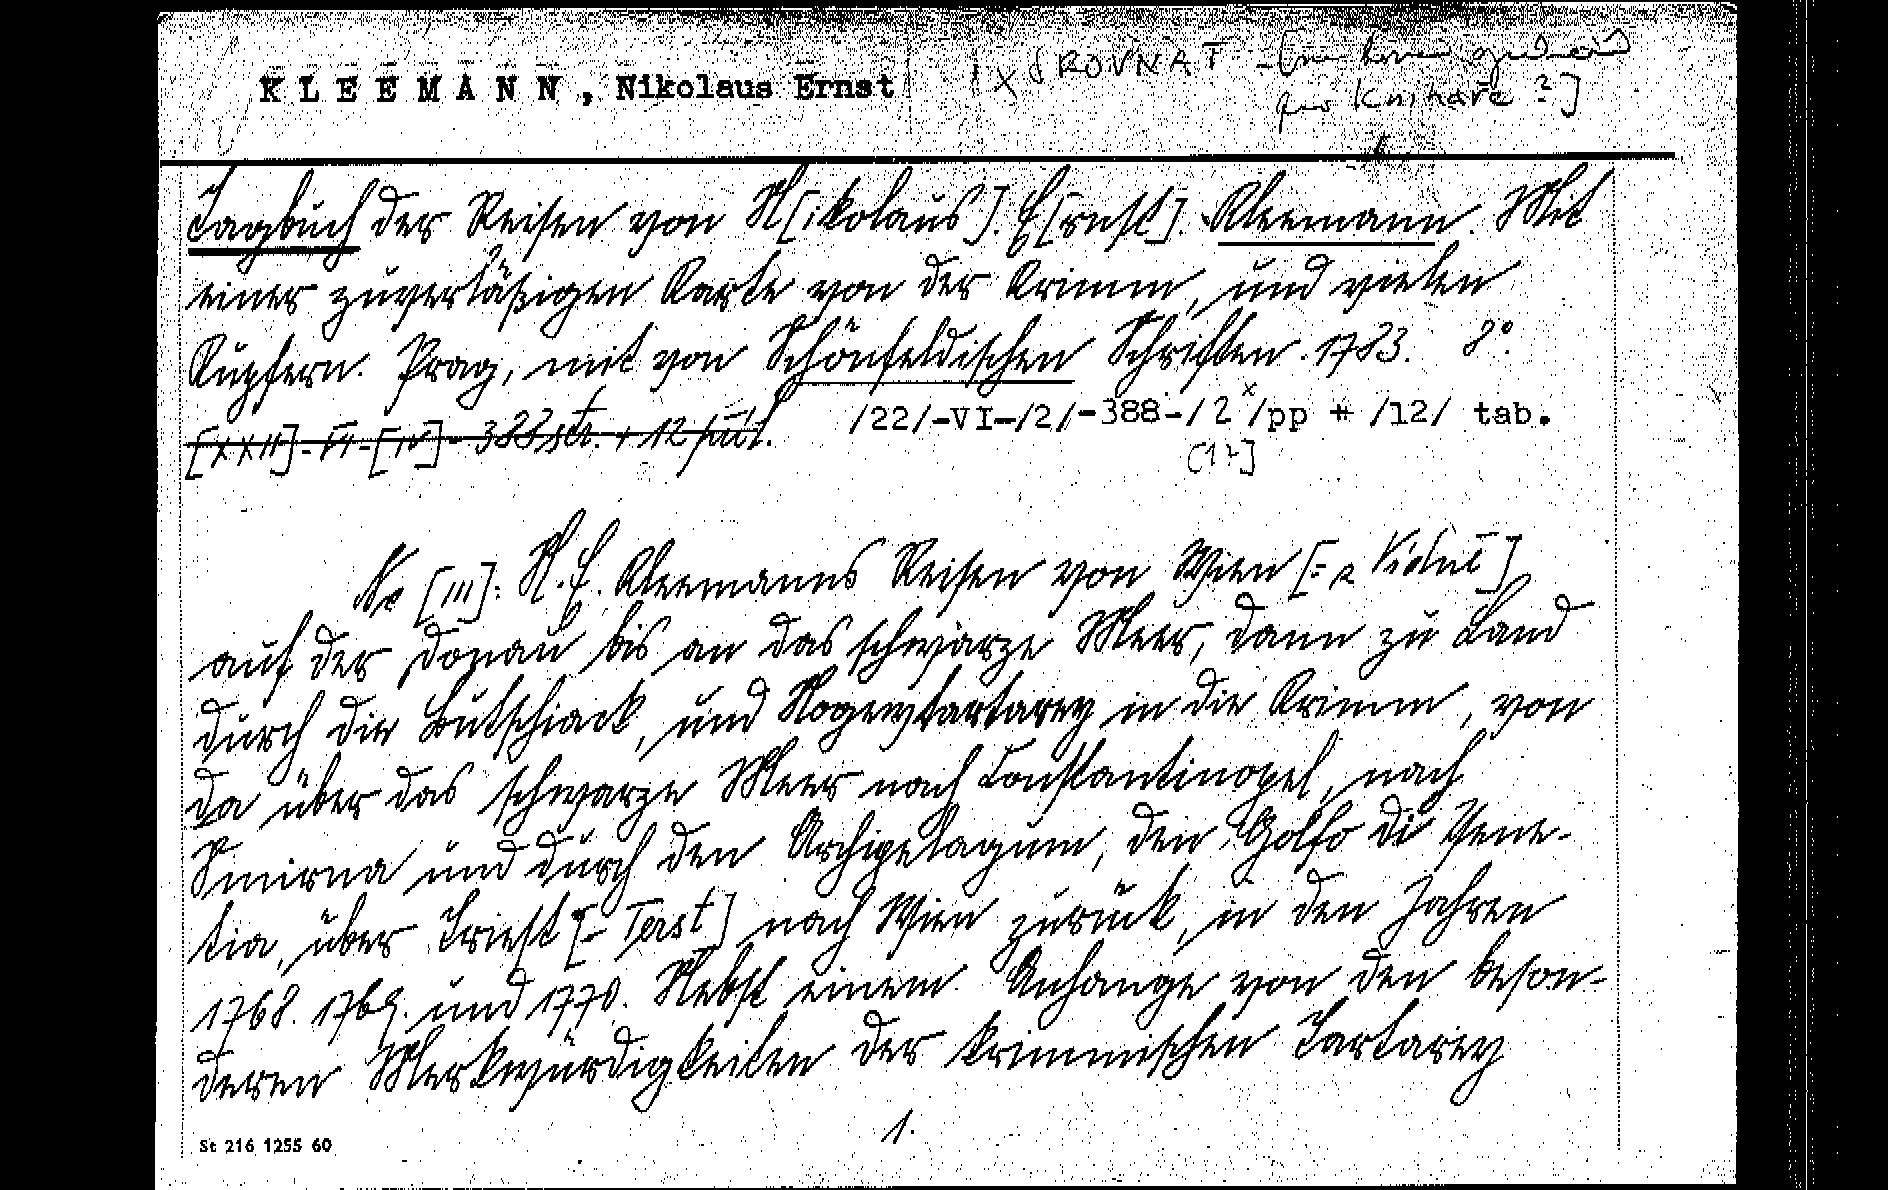 KLEEMANN, Nikolaus Ernst
x SROVNAT
Knihaře ?]
Tagbuch der Reisen von N[ikolaus]. E[rnst]. Kleemann. Mit
einer zuverläßigen Karte von der Krimm, und vielen
Kupfern. Prag, mit von Schönfeldischen Schriften. 1783. 8°.
/22/-VI-/2/-388-/2x/pp + /12/ tab.
Na [III]: N. E. Kleemanns Reisen von Wien [= z Vídně]
auf der Donau bis an das schwarze Meer, dann zu Land
durch die Butschiack, und Nogeytartarey in die Krimm, von
da über das schwarze Meer nach Constantinopel, nach
Smirna und durch den Archipelagum, den Golfo di Vene-
tia, über Triest [= Terst] nach Wien zurück, in den Jahren
1768. 1769. und 1770. Nebst einem Anhange von den beson-
deren Merkwürdigkeiten der krimmischen Tartarey
1.
St 216 1255 60